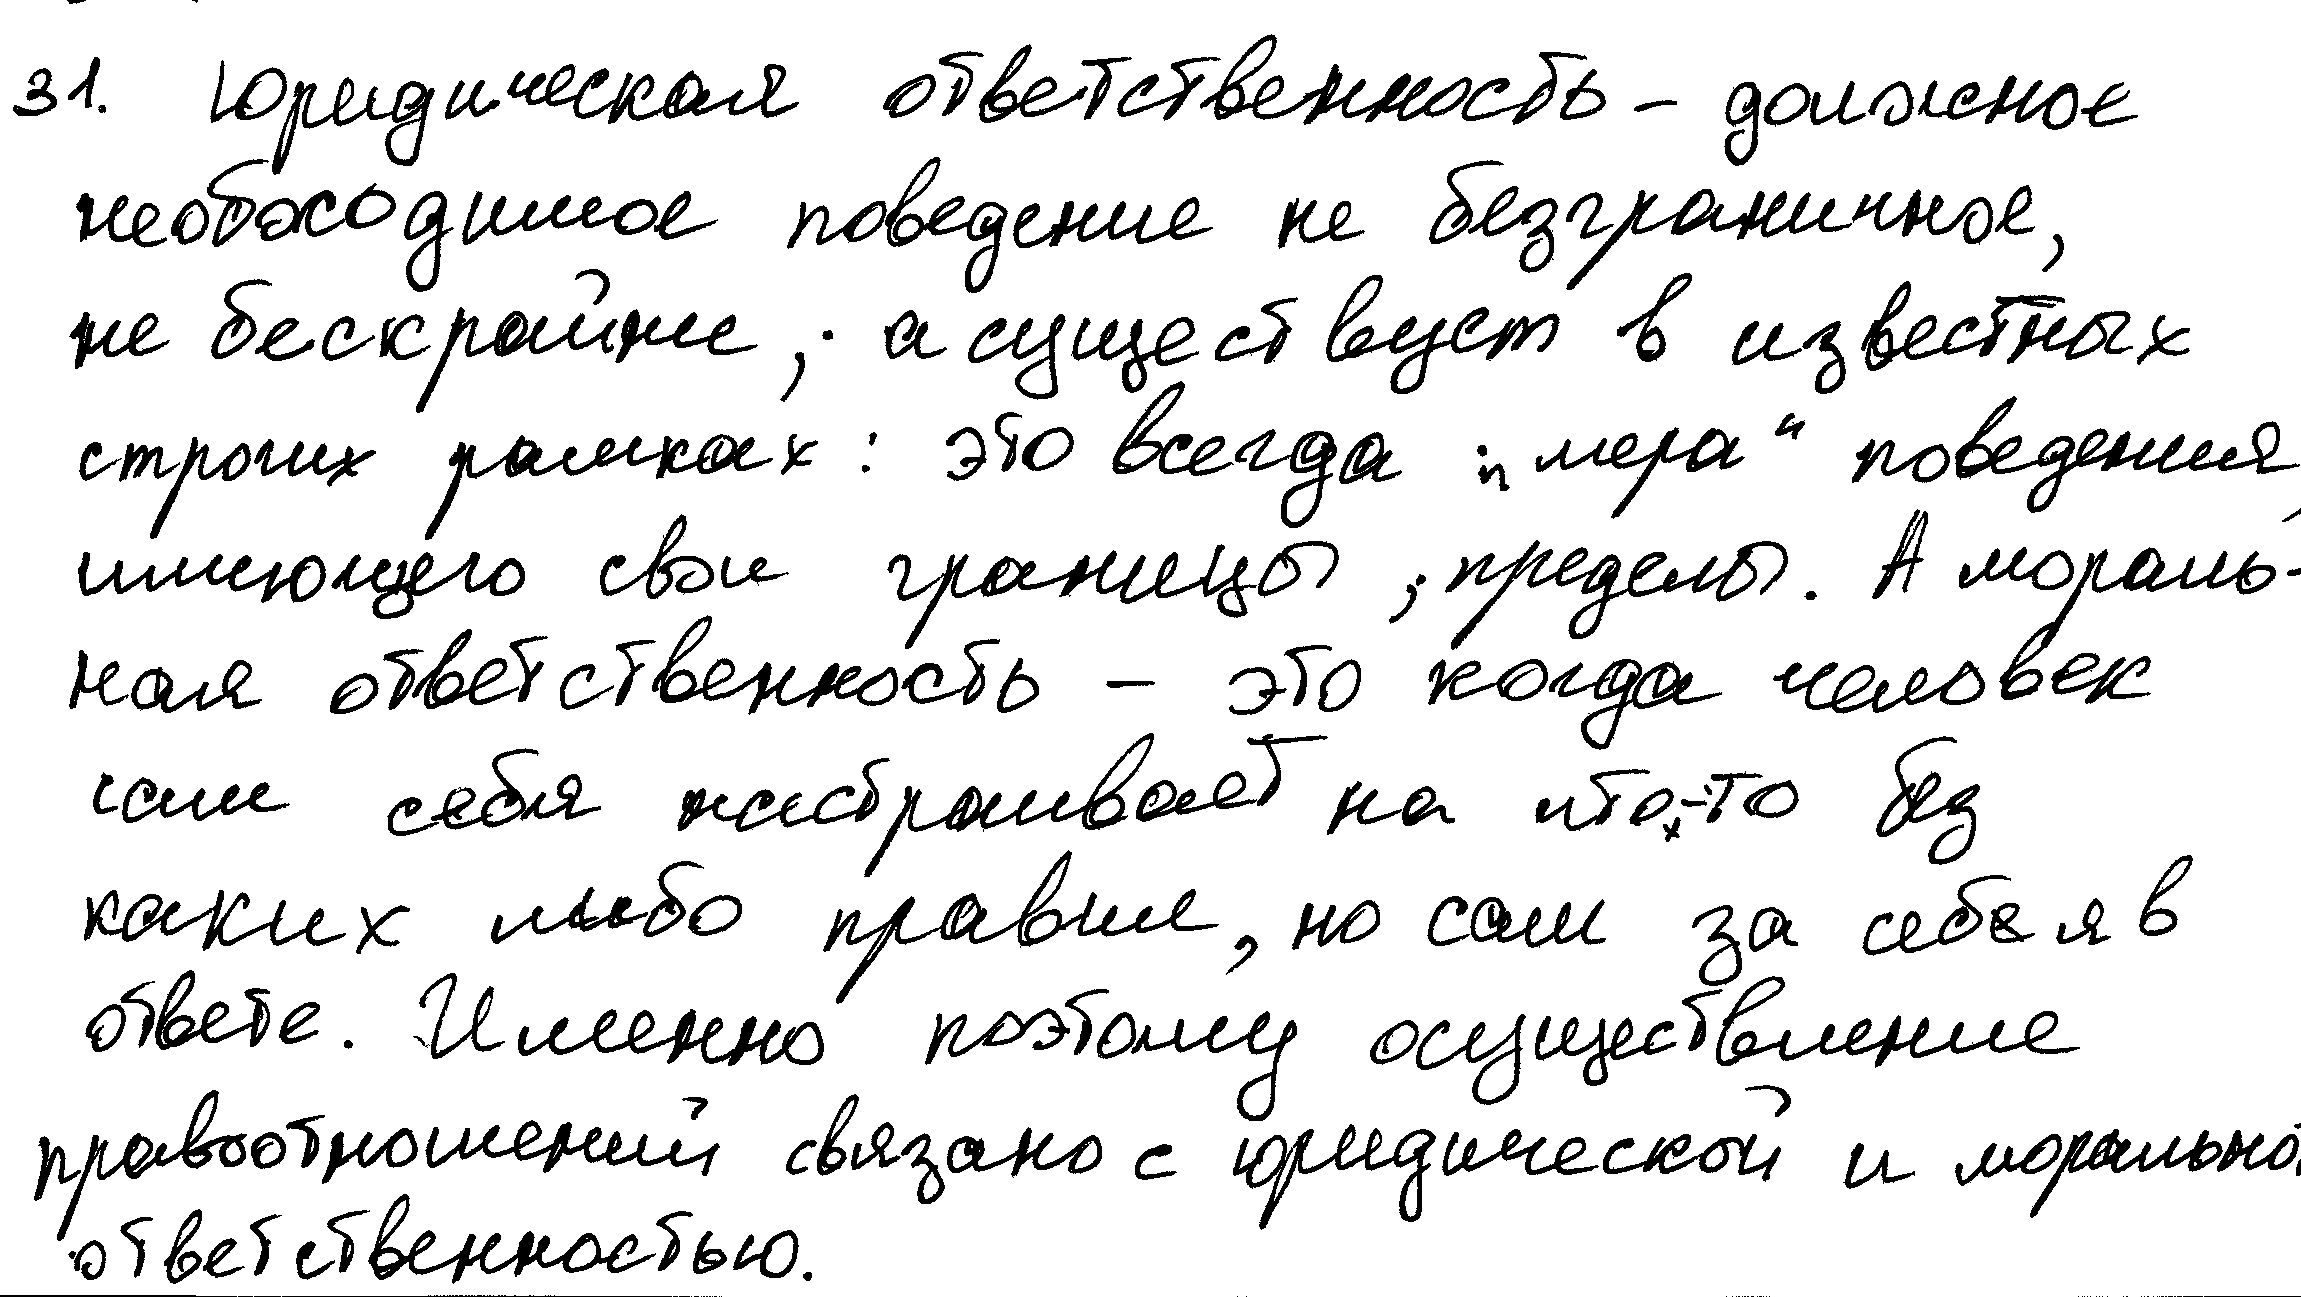 31. Юридическая ответственность – должное
необходимое поведение не безграничное,
не бескрайне, а существует в известных
строгих рамках: это всегда „мера“ поведения,
имеющего свои границы, пределы. А мораль-
ная ответственность – это когда человек
сам себя настраивает на что-то без
каких либо правил, но сам за себя в
ответе. Именно поэтому осуществление
правоотношений связано с юридической и морально
ответственностью.